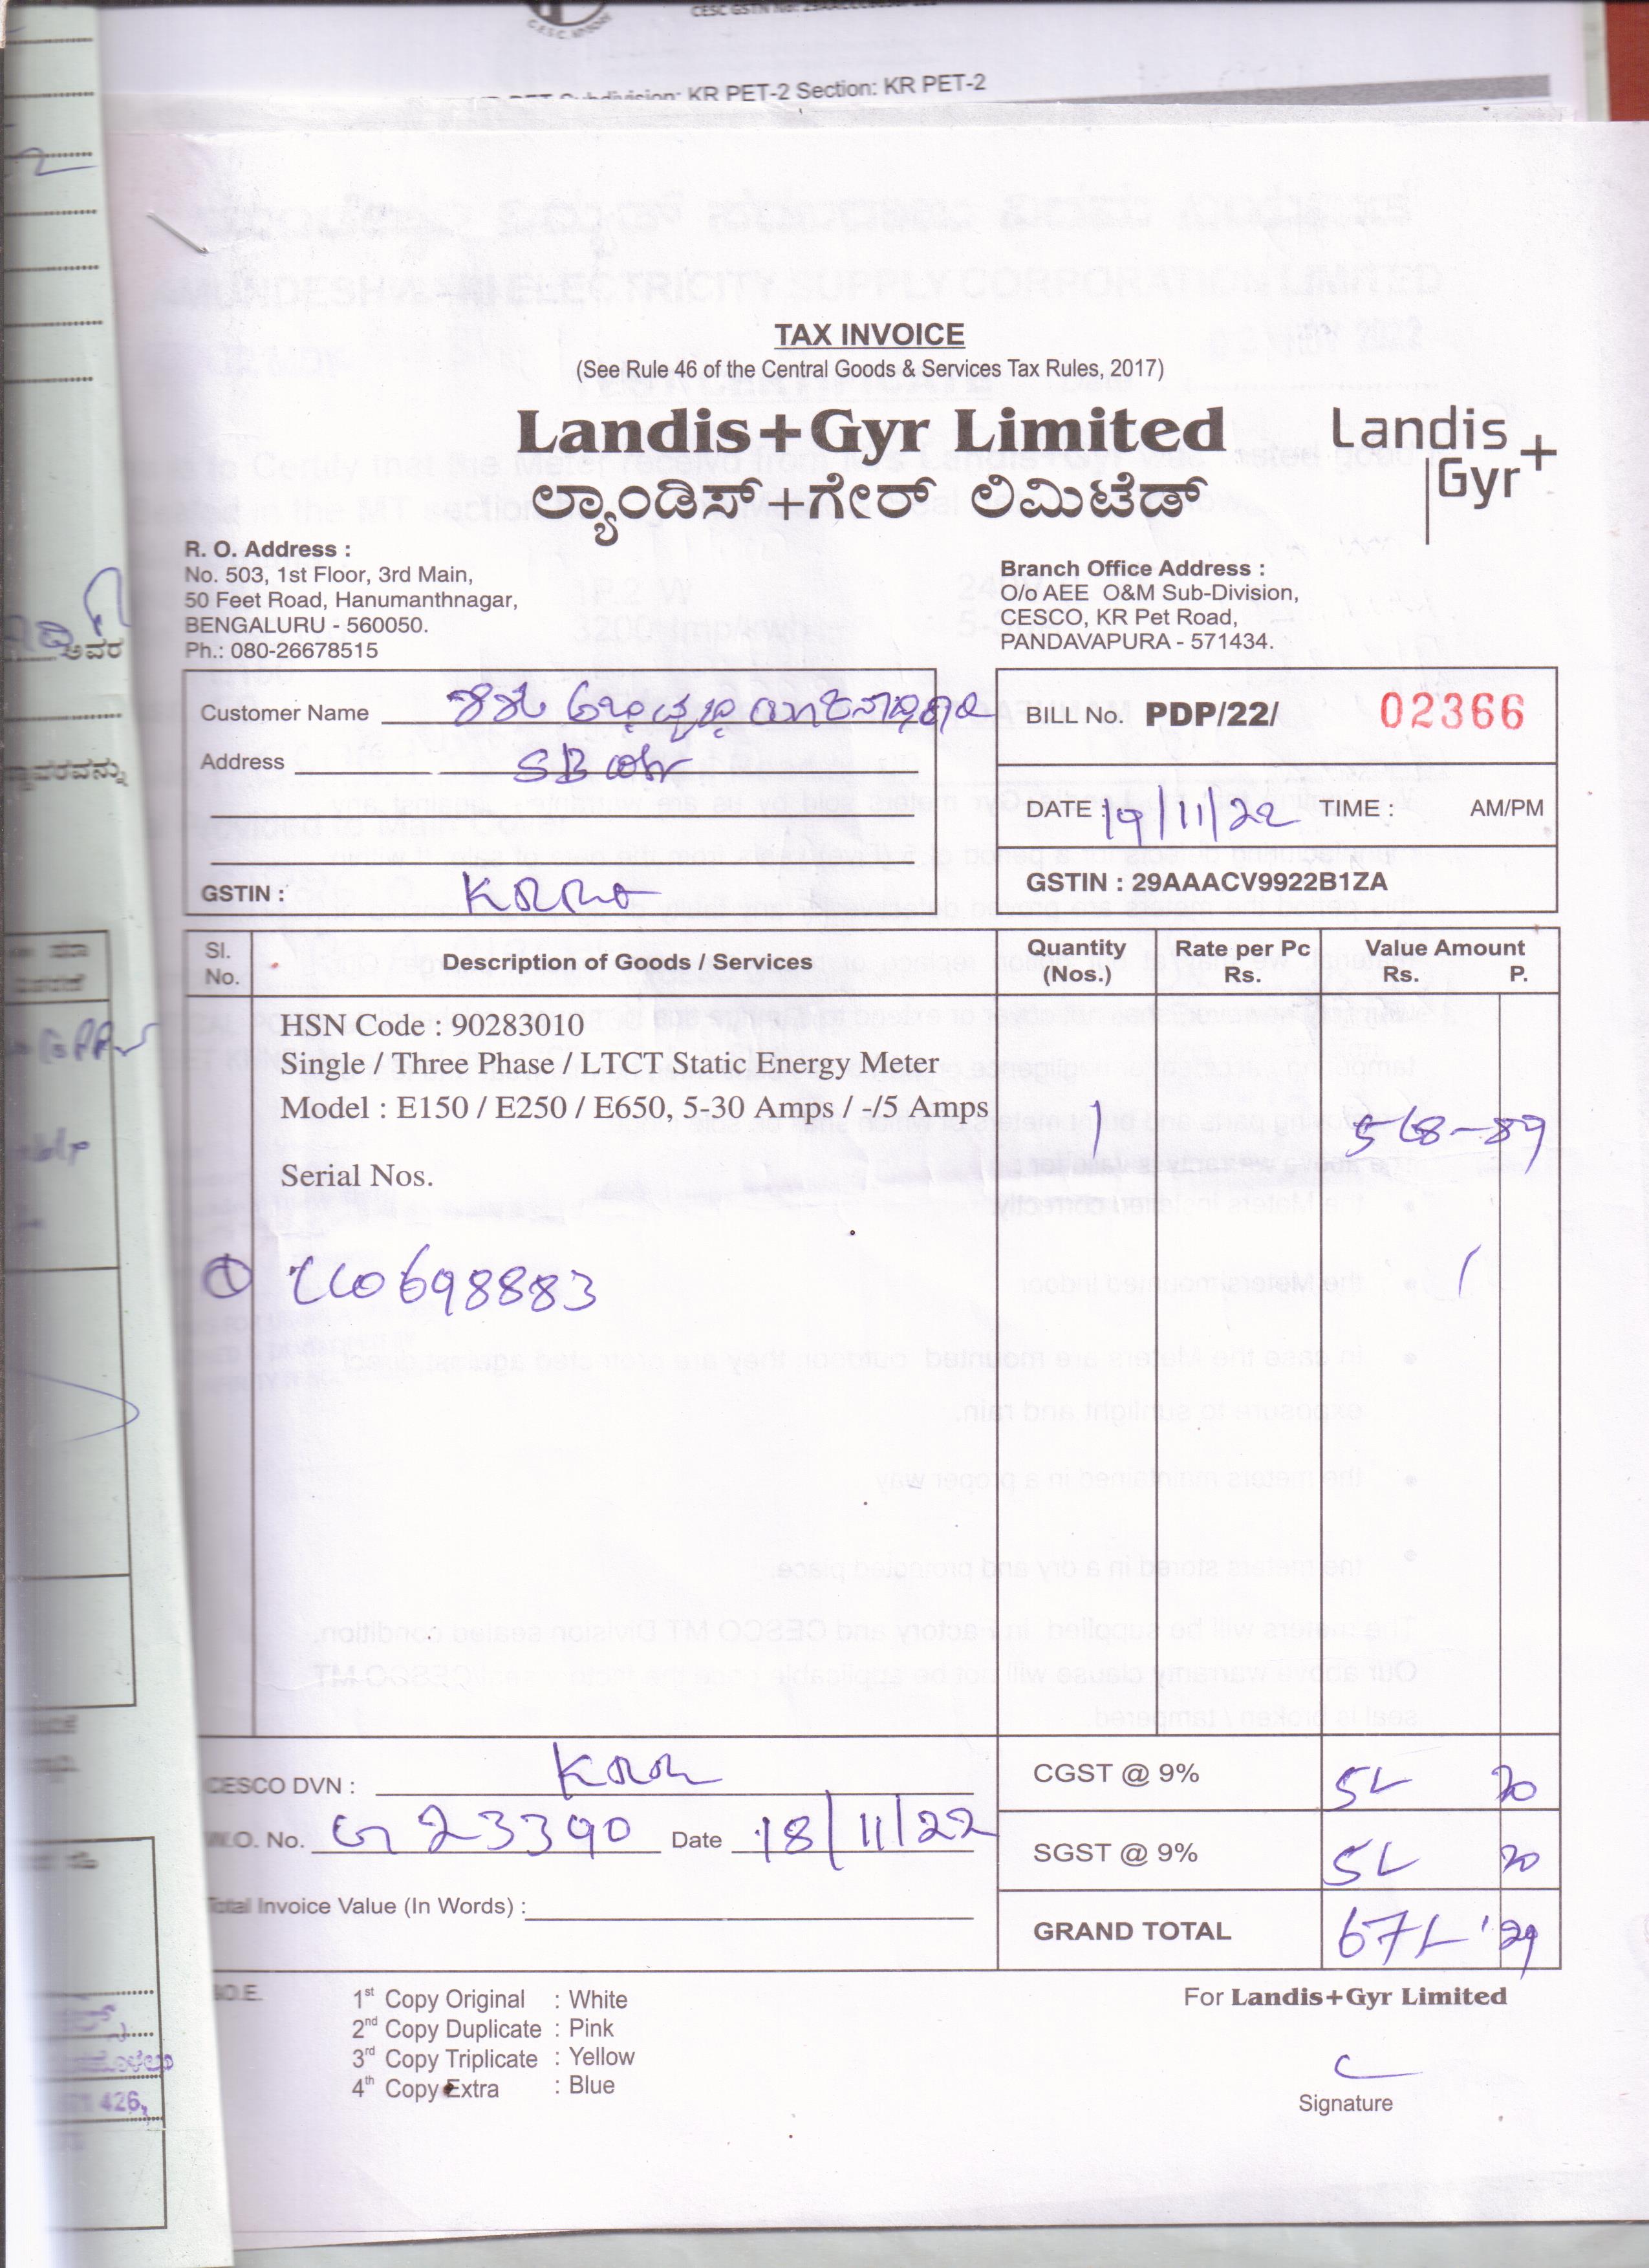 KR PET-2 Section: KR PET-2
TAX INVOICE
(See Rule 46 of the Central Goods & Services Tax Rules, 2017)
Landis+Gyr Limited
Landis
Gyr+
ಲ್ಯಾಂಡಿಸ್+ಗೇರ್ ಲಿಮಿಟೆಡ್
R. O. Address :
No. 503, 1st Floor, 3rd Main,
50 Feet Road, Hanumanthnagar,
BENGALURU - 560050.
Ph.: 080-26678515
Branch Office Address :
O/o AEE O&M Sub-Division,
CESCO, KR Pet Road,
PANDAVAPURA - 571434.
Customer Name
Address
GSTIN :
BILL No. PDP/22/ 02366
DATE : 19/11/22 TIME : AM/PM
GSTIN : 29AAACV9922B1ZA
Sl. No. Description of Goods / Services Quantity (Nos.) Rate per Pc Rs. Value Amount Rs. P.
HSN Code : 90283010
Single / Three Phase / LTCT Static Energy Meter
Model : E150 / E250 / E650, 5-30 Amps / -/5 Amps 1 568-89
Serial Nos.
698883
CESCO DVN :
W.O. No. 23390 Date 18/11/22
Total Invoice Value (In Words) :
CGST @ 9% 51 20
SGST @ 9% 51 20
GRAND TOTAL 671 29
1st Copy Original : White
2nd Copy Duplicate : Pink
3rd Copy Triplicate : Yellow
4th Copy Extra : Blue
For Landis+Gyr Limited
Signature